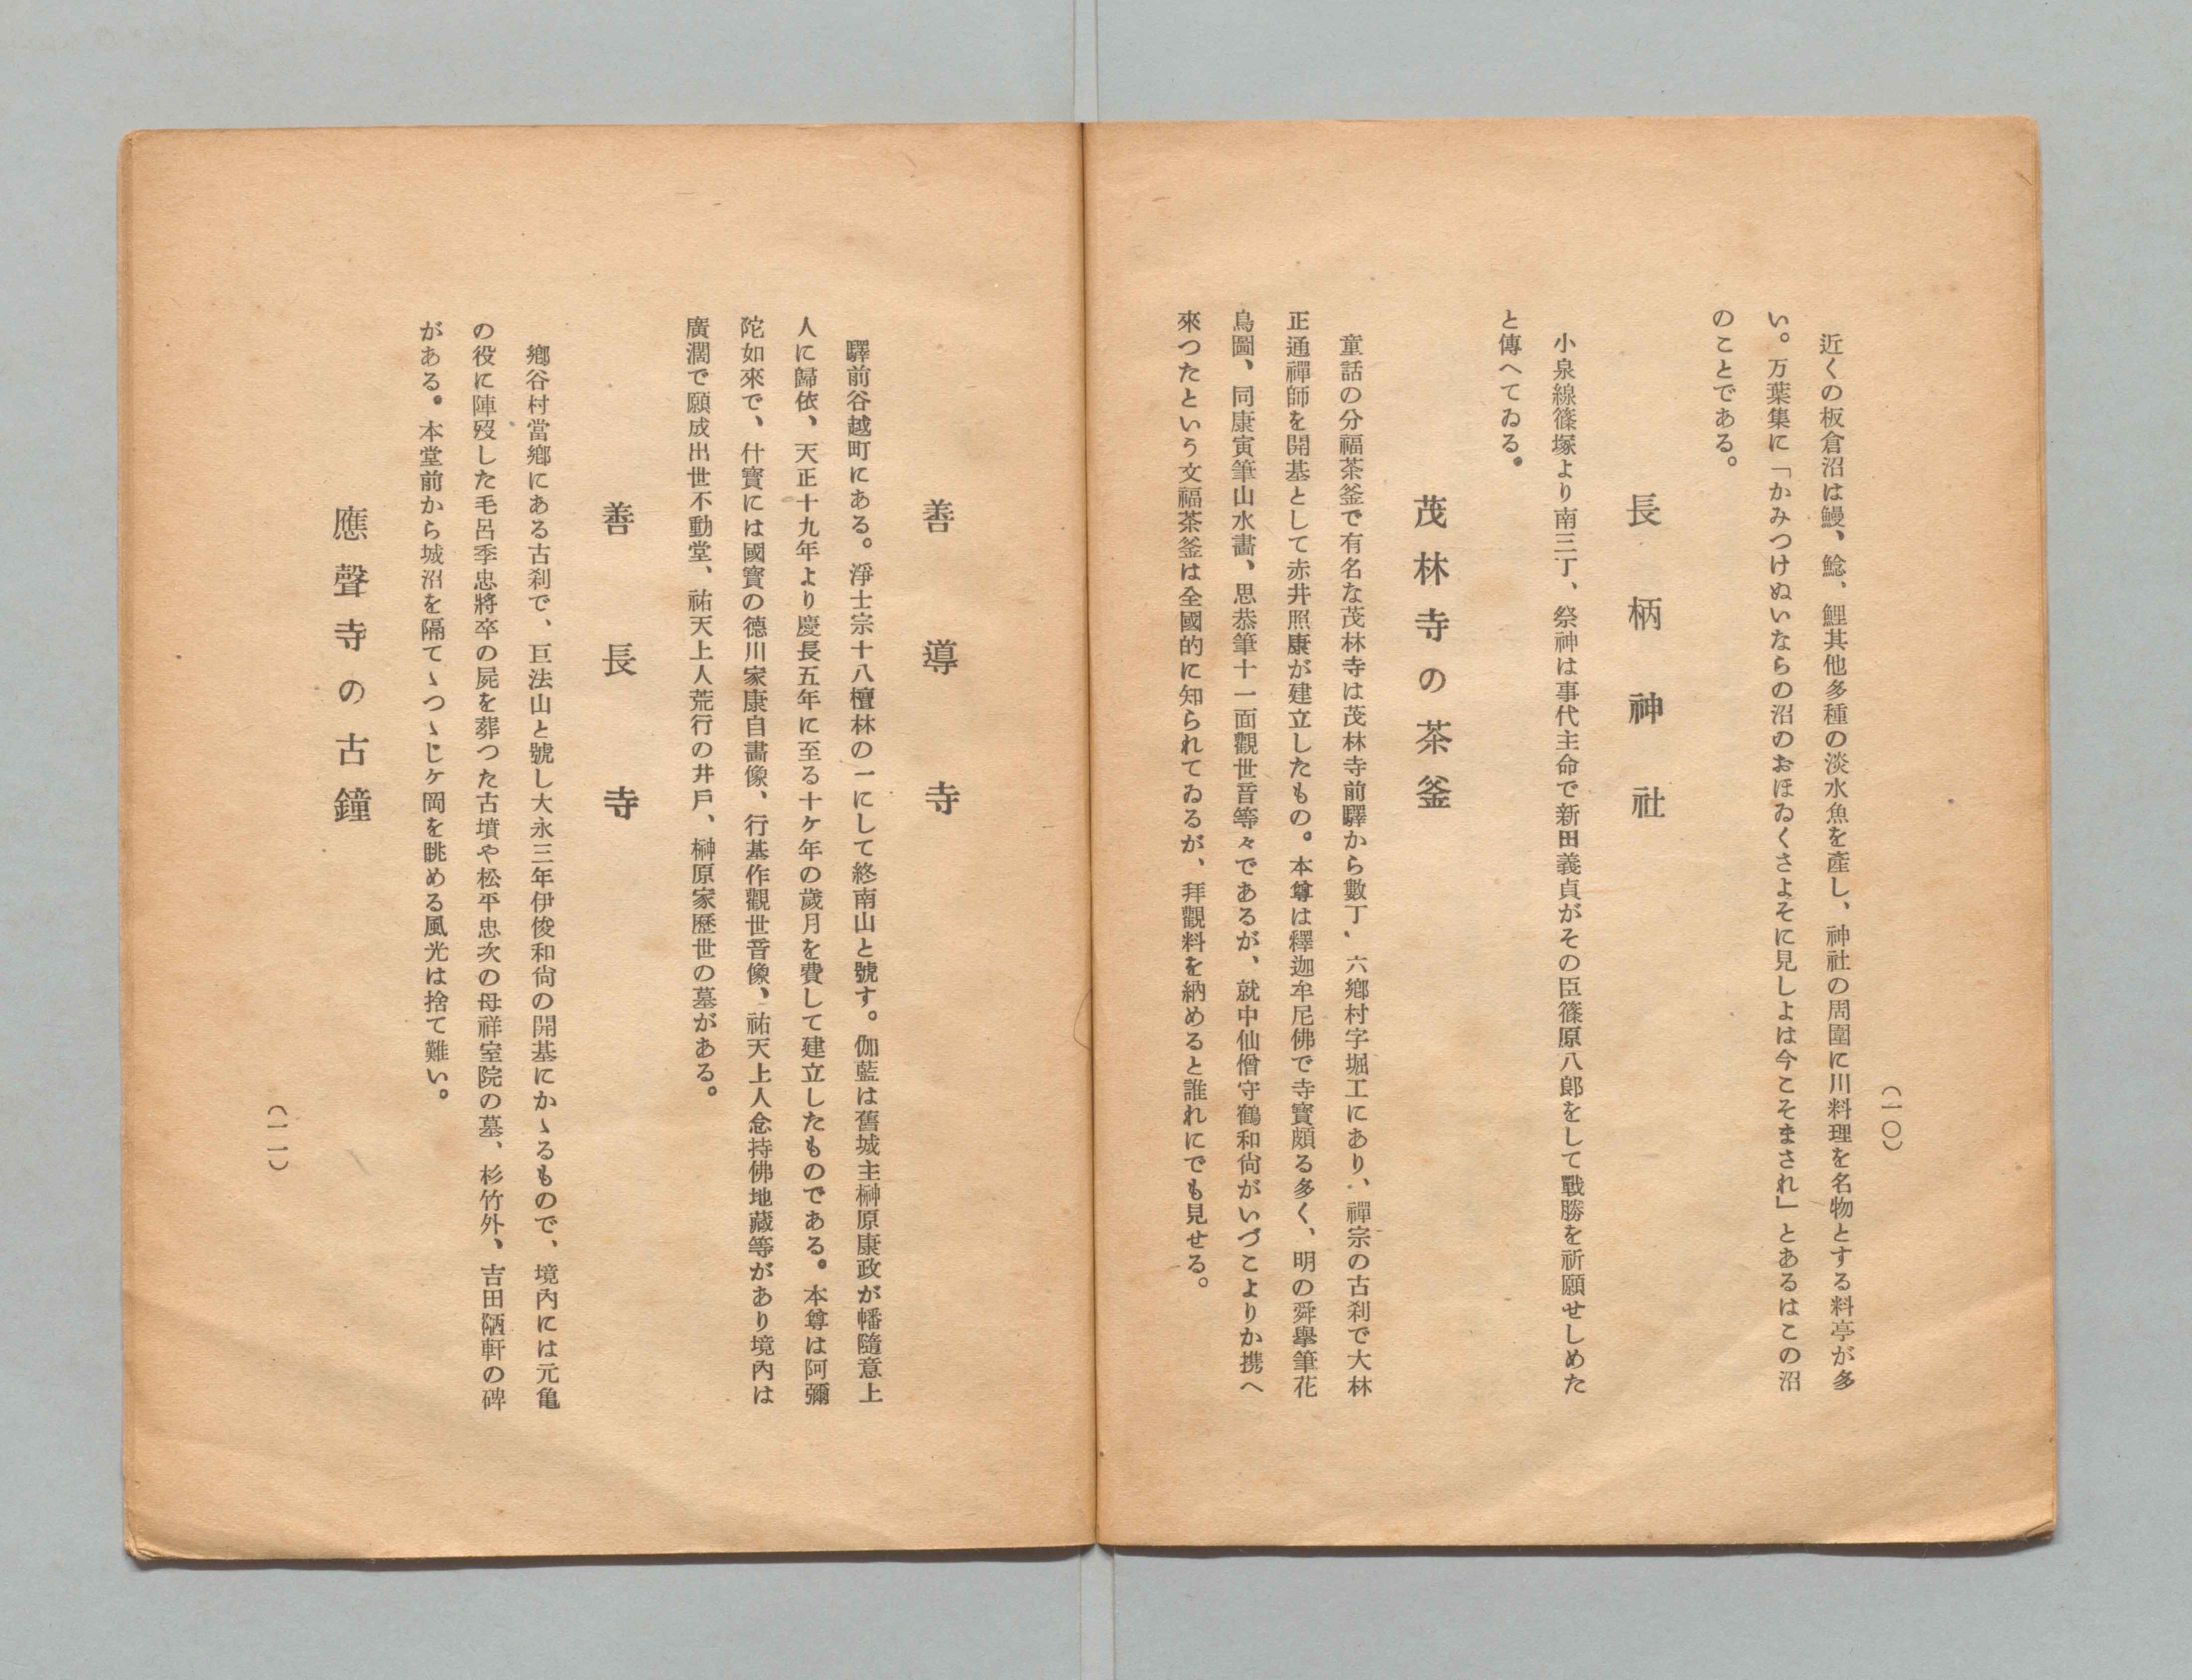 近くの板倉沼は鰻、鯰、鯉其他多種の淡水魚を產し、神社の周圍に川料理を名物とする料亭が多
い。万葉集に「かみつけぬいならの沼のおほゐくさよそに見しよは今こそまされ」とあるはこの沼
のことである。
長柄神社
小泉線篠塚より南三丁、祭神は事代主命で新田義貞がその臣篠原八郞をして戰勝を祈願せしめた
と傳へてゐる。
茂林寺の茶釜
童話の分福茶釜で有名な茂林寺は茂林寺前驛から數丁、六鄕村字堀工にあり、禪宗の古刹で大林
正通禪師を開基として赤井照康が建立したもの。本尊は釋迦牟尼佛で寺寶頗る多く、明の舜擧筆花
鳥圖、同康寅筆山水畵、思恭筆十一面觀世音等々であるが、就中仙僧守鶴和尙がいづこよりか携へ
來つたという文福茶釜は全國的に知られてゐるが、拜觀料を納めると誰れにでも見せる。
(一〇)
善導寺
驛前谷越町にある。淨土宗十八檀林の一にして終南山と號す。伽藍は舊城主榊原康政が幡隨意上
人に歸依、天正十九年より慶長五年に至る十ケ年の歲月を費して建立したものである。本尊は阿彌
陀如來で、什寶には國寶の德川家康自畵像、行基作觀世音像、祐天上人念持佛地藏等があり境內は
廣濶で願成出世不動堂、祐天上人荒行の井戶、榊原家歷世の墓がある。
善長寺
鄕谷村當鄕にある古刹で、巨法山と號し大永三年伊俊和尙の開基にかゝるもので、境內には元亀
の役に陣歿した毛呂季忠將卒の屍を葬つた古墳や松平忠次の母祥室院の墓、杉竹外、吉田陋軒の碑
がある。本堂前から城沼を隔てゝつゝじケ岡を眺める風光は捨て難い。
應聲寺の古鐘
(一一)